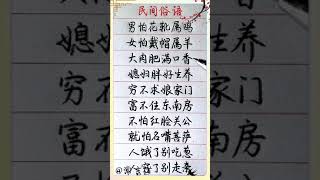 民间俗语
男怕花靴属鸡
女怕戴帽属羊
大肉肥满口香
媳妇胖好生养
穷不求娘家门
富不住东南房
不怕红脸关公
就怕名嘴菩萨
人饿了别吃葱
人穷了别走亲